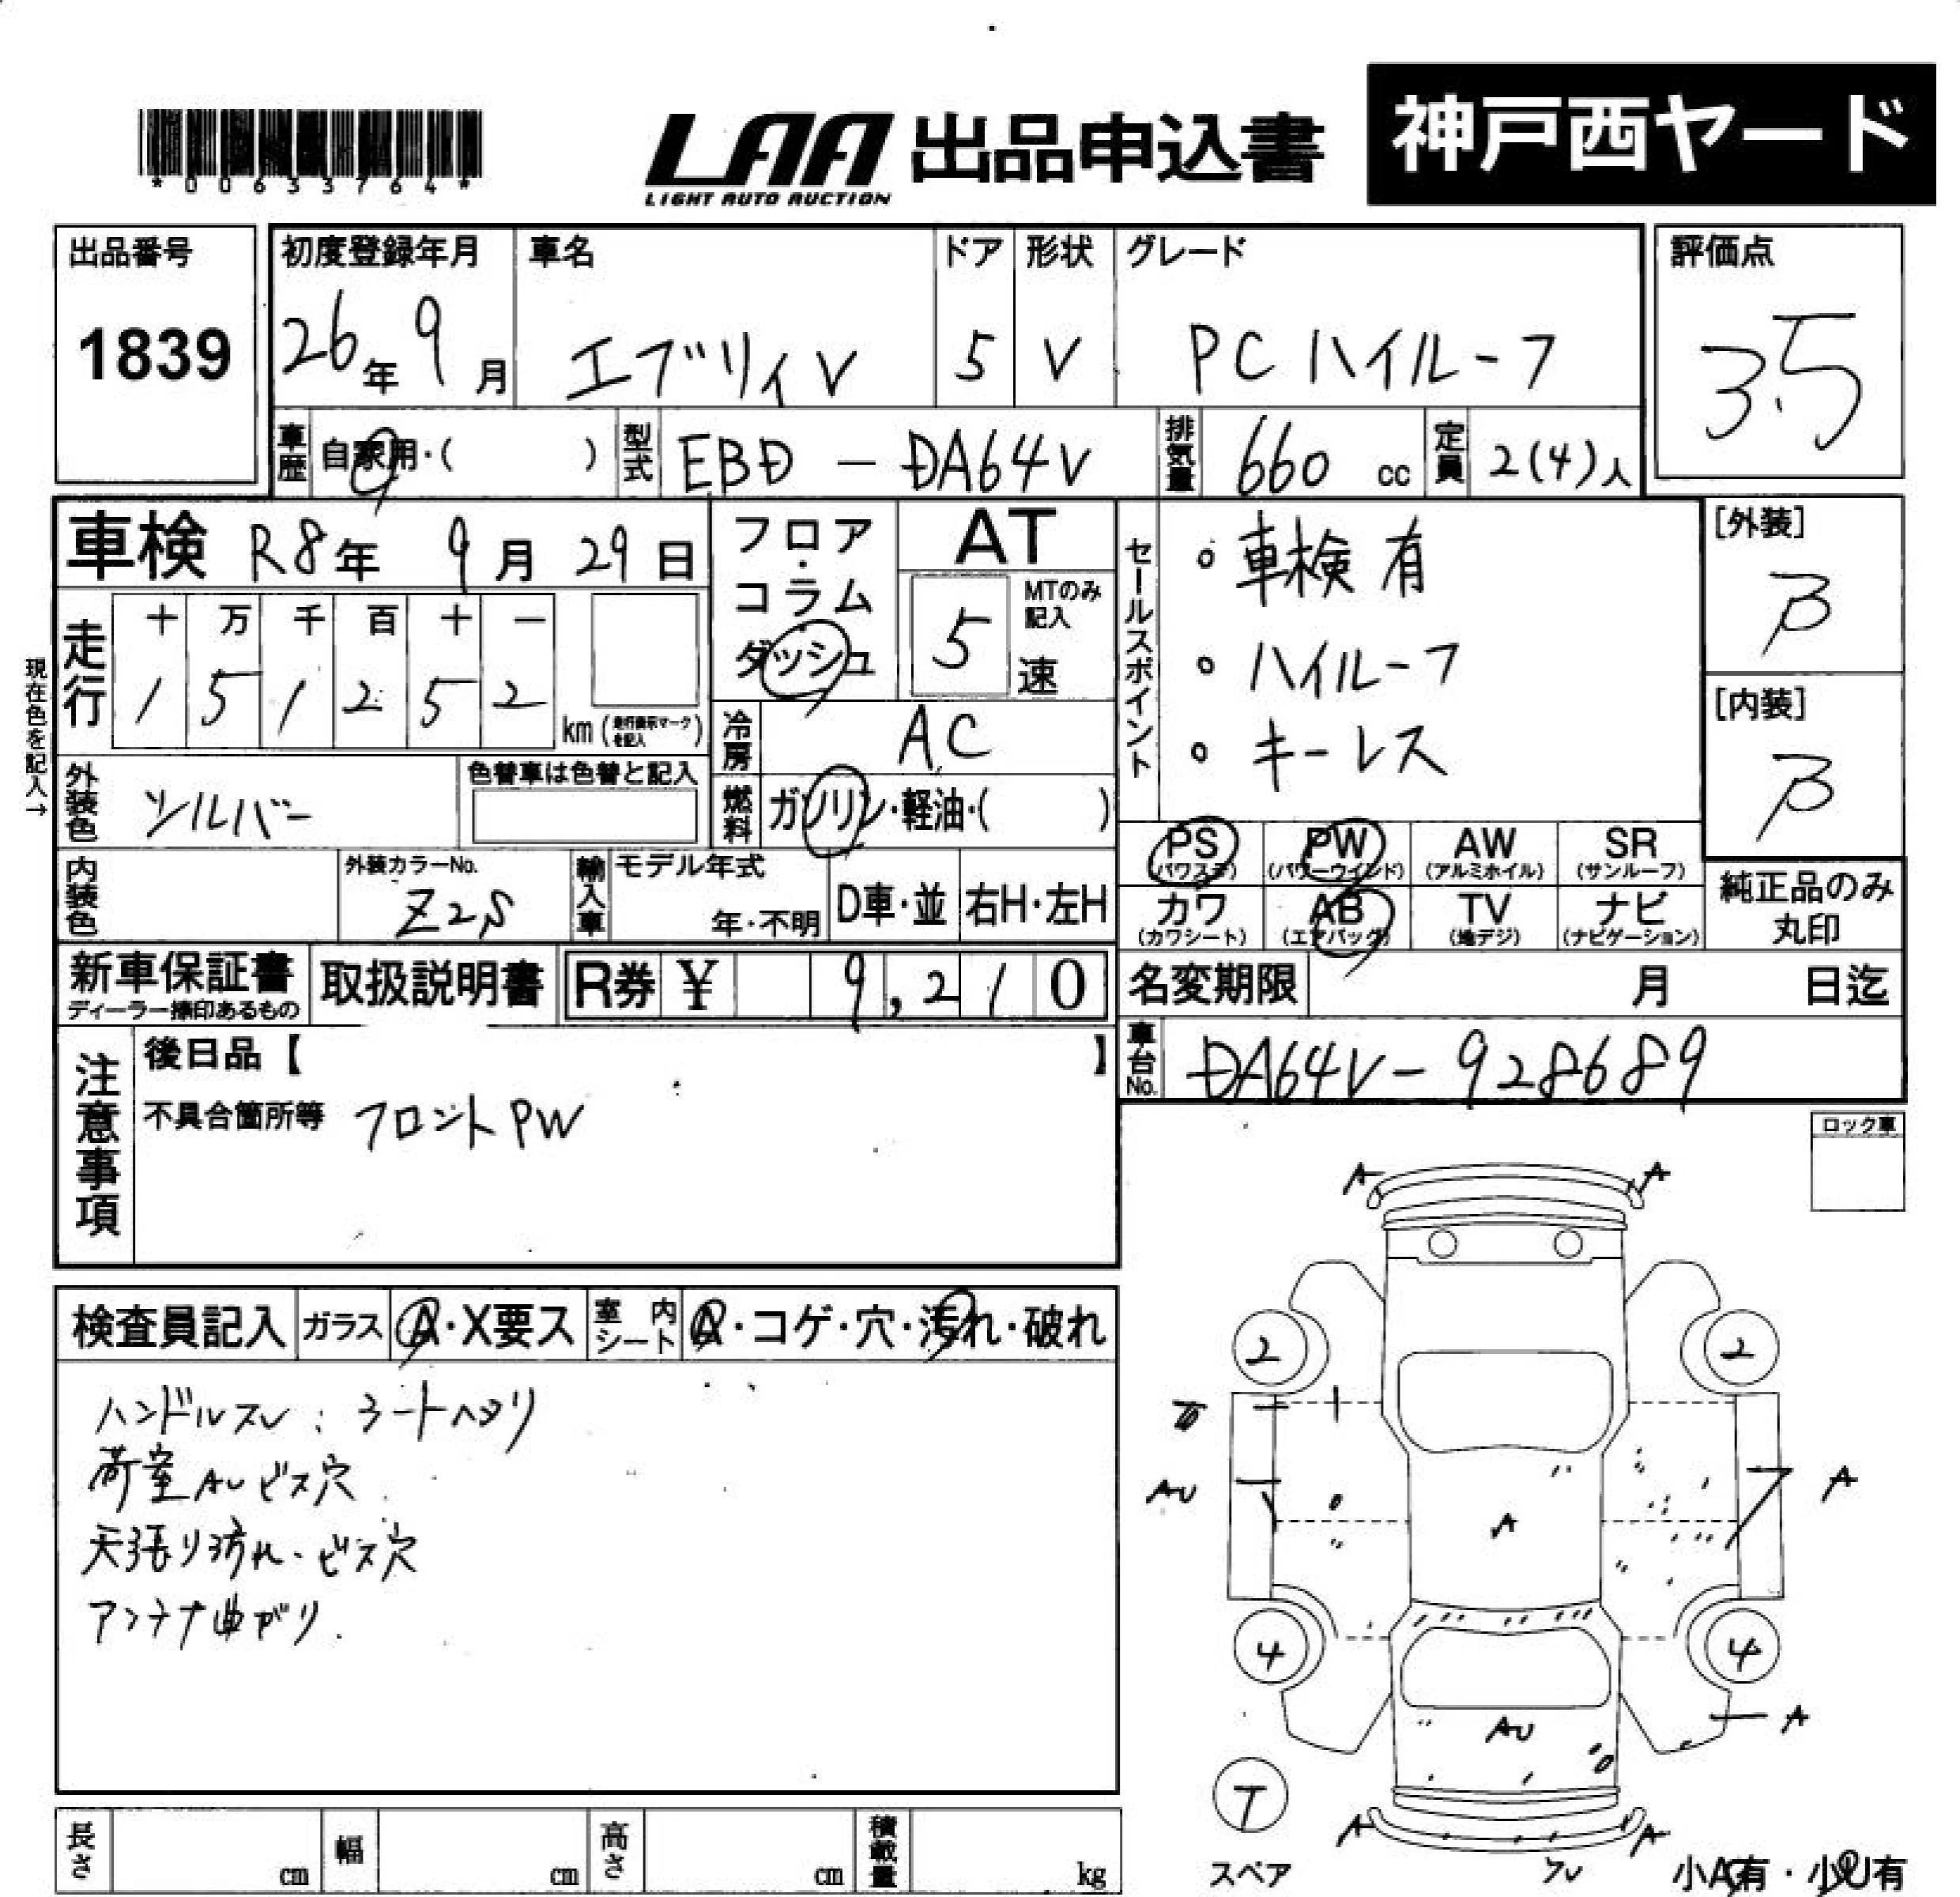 *00633764*
LAA 出品申込書 神戸西ヤード
LIGHT AUTO AUCTION
出品番号 初度登録年月 車名 ドア 形状 グレード 評価点
1839 26年 9月 エブリィV 5 V PCハイルーフ 3.5
車歴 自家用・( ) 型式 EBD-DA64V 排気量 660 cc 定員 2(4)人
車検 R8年 9月 29日 フロア・コラム ダッシュ AT セールスポイント ・車検有 [外装]
B
現在色を記入→
走行 十 万 千 百 十 一 MTのみ記入
1 5 1 2 5 2 km (走行表示マークを記入) 5 速 ・ハイルーフ [内装]
冷房 AC ・キーレス B
外装色 シルバー 色替車は色替と記入 燃料 ガソリン・軽油・( )
PS (パワステ) PW (パワーウインド) AW (アルミホイル) SR (サンルーフ)
内装色 外装カラーNo. Z2S 輸入車 モデル年式 年・不明 D車・並 右H・左H
カワ (カワシート) AB (エアバッグ) TV (地デジ) ナビ (ナビゲーション) 純正品のみ丸印
新車保証書 ディーラー捺印あるもの 取扱説明書 R券 ¥ 9,210 名変期限 月 日迄
注意事項 後日品【 】 車台No. DA64V-928689
不具合箇所等 フロントPW
ロック車
検査員記入 ガラス A・X要ス 室内シート A・コゲ・穴・汚れ・破れ
ハンドルスレ:シートヘタリ
荷室AUビス穴
天張り汚れ・ビス穴
アンテナ曲がり.
A A
2 2
AU A
A
4 4
AU A
T
A A
スペア 小A有・小U有
長さ cm 幅 cm 高さ cm 積載量 kg